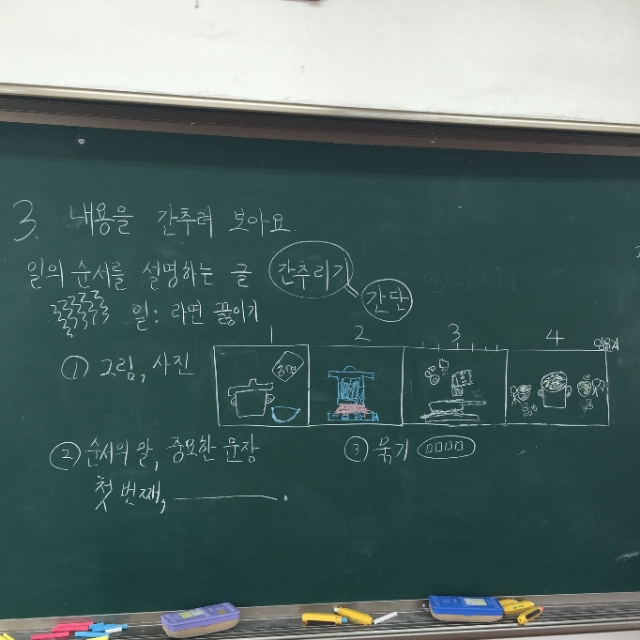 3. 내용을 간추려 보아요.
일의 순서를 설명하는 글 간추리기
간단
일: 라면 끓이기
① 그림, 사진
1 2 3 4
② 순서의 말, 중요한 문장
③ 묶기 ㅁㅁㅁㅁ
첫 번째, ___________.